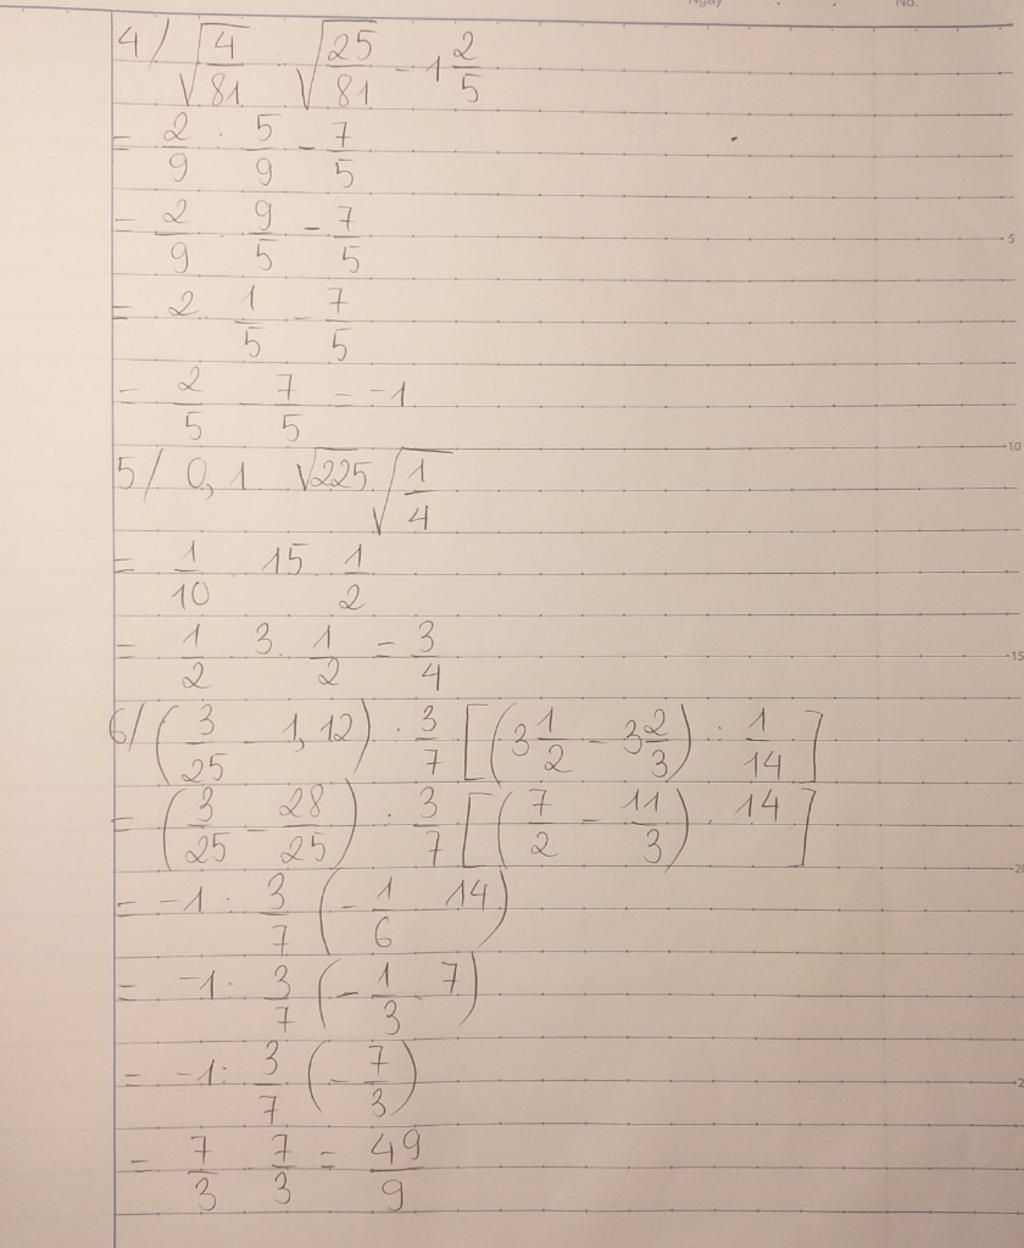 Ngày No.
4/ √(4/81) : √(25/81) - 1 2/5
= 2/9 : 5/9 - 7/5
= 2/9 . 9/5 - 7/5
= 2 . 1/5 - 7/5
= 2/5 - 7/5 = -1
5/ 0,1 . √225 . √(1/4)
= 1/10 . 15 . 1/2
= 1/2 . 3 . 1/2 = 3/4
6/ (3/25 - 1,12) : 3/7 [(3 1/2 - 3 2/3) : 1/14]
= (3/25 - 28/25) : 3/7 [(7/2 - 11/3) . 14]
= -1 : 3/7 (-1/6 . 14)
= -1 : 3/7 (-1/3 . 7)
= -1 : 3/7 (-7/3)
= 7/3 . 7/3 = 49/9
5
10
15
20